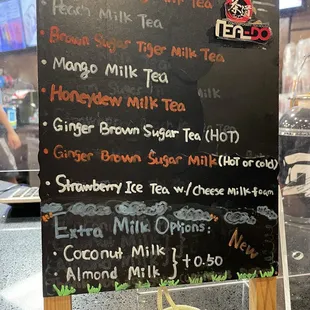 Peach Milk Tea
TEA-DO
Brown Sugar Tiger Milk Tea
Mango Milk Tea
Honeydew Milk Tea
Ginger Brown Sugar Tea (HOT)
Ginger Brown Sugar Milk (Hot or cold)
Strawberry Ice Tea w./cheese milk foam
Extra Milk Options:
New
Coconut Milk
Almond Milk } +0.50